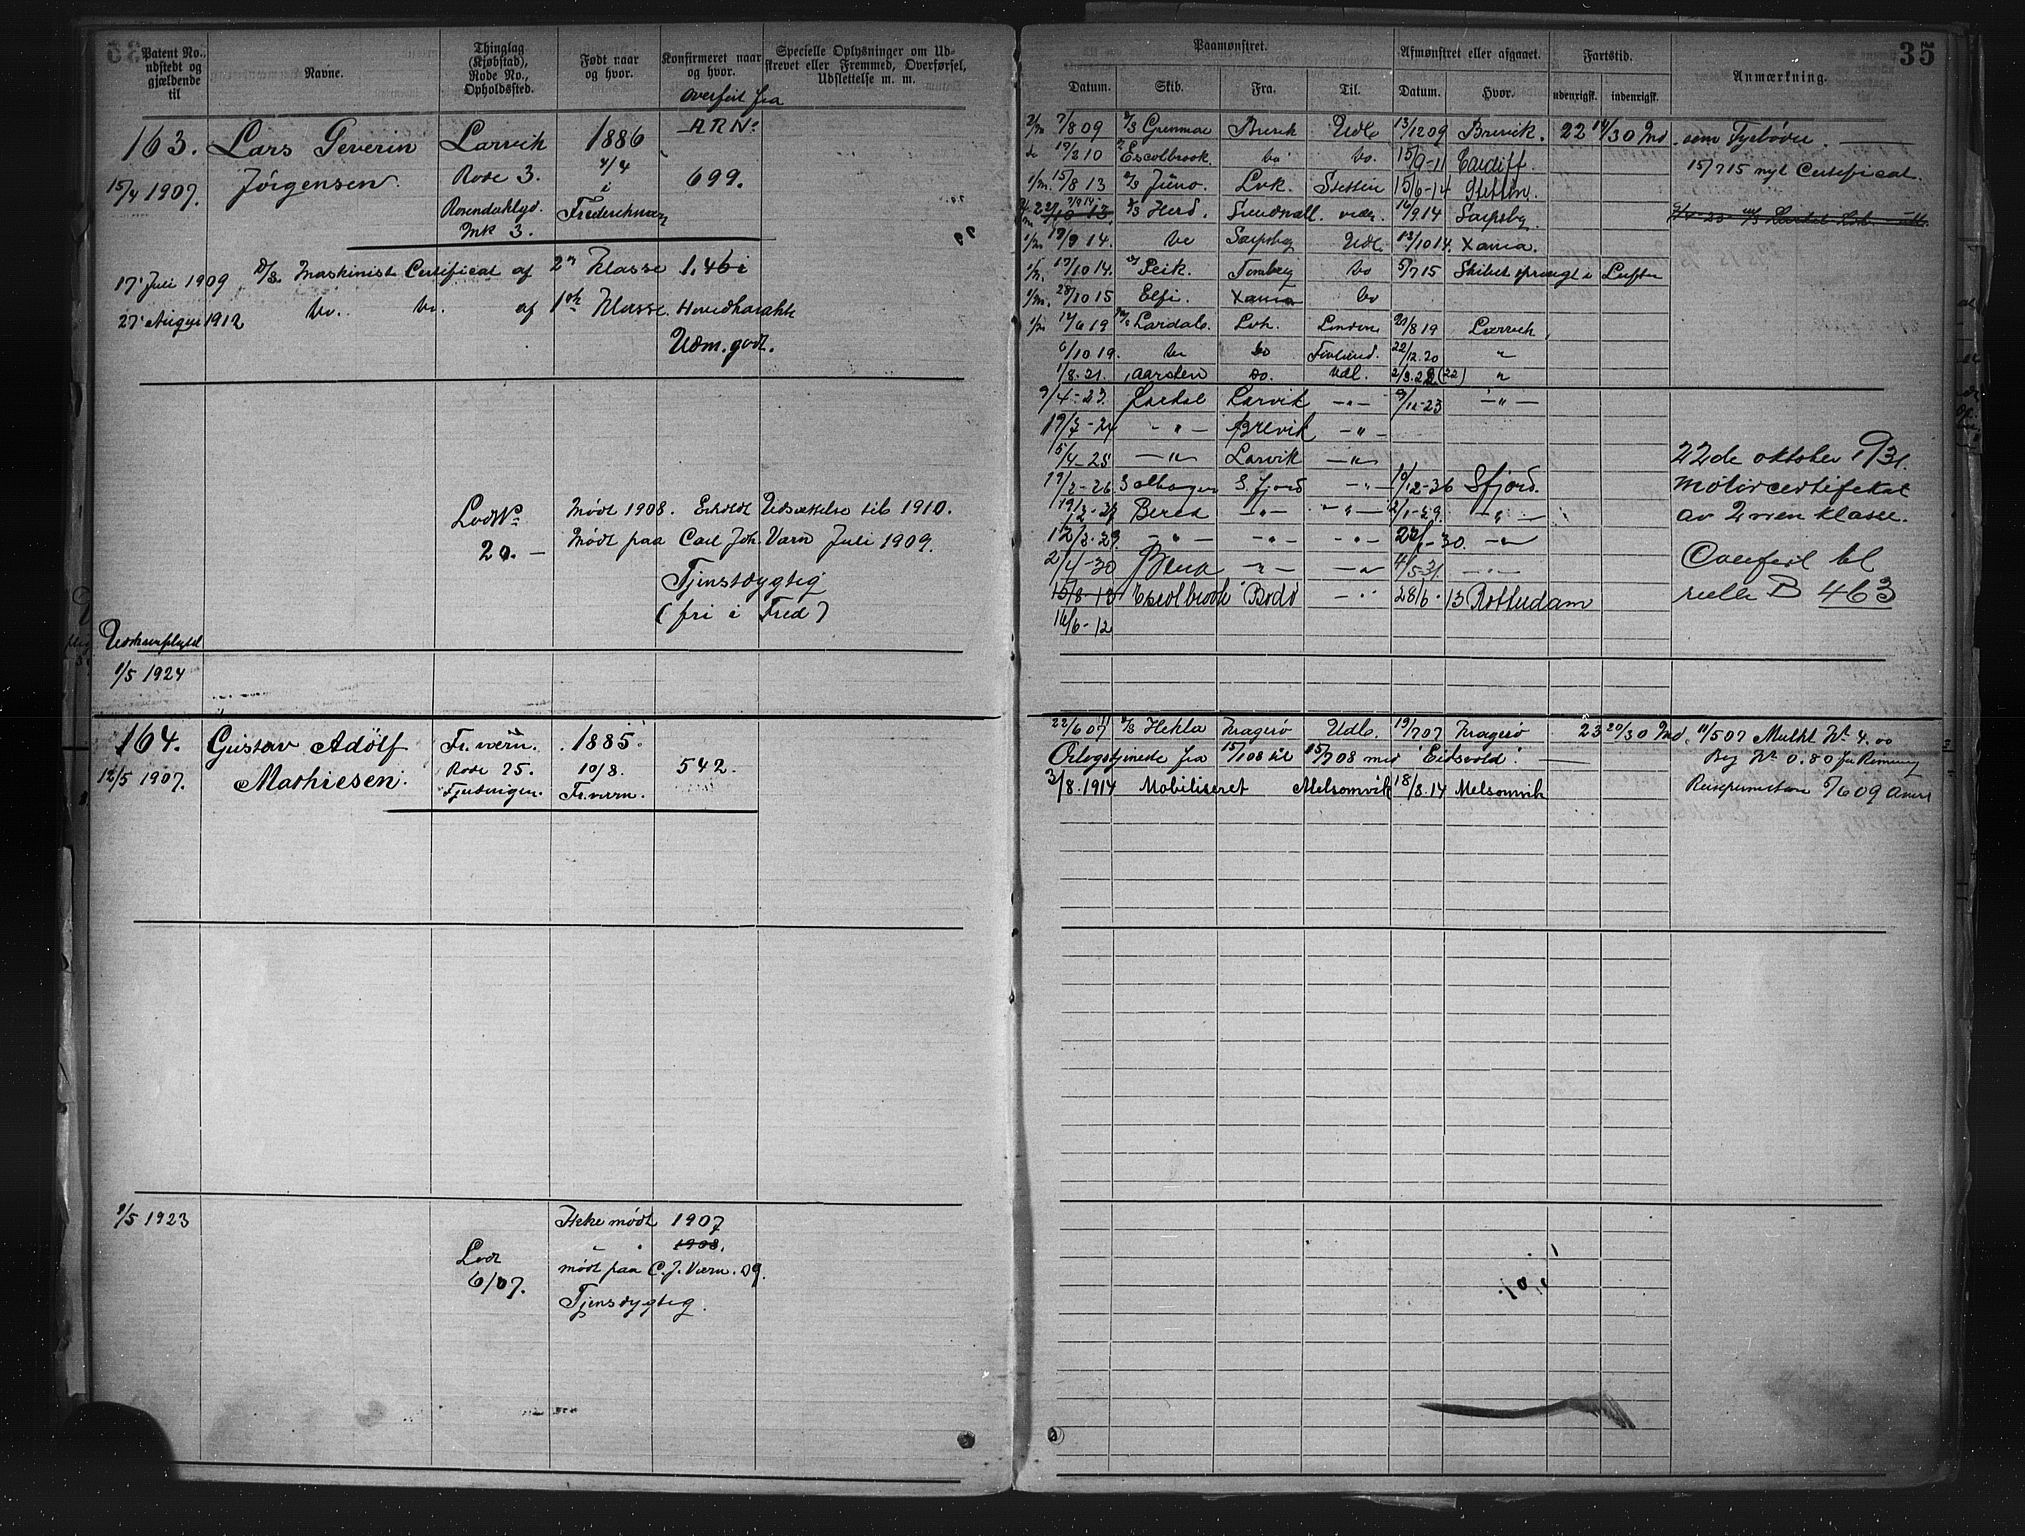 35
Patent No., udstedt og gjældende til
Navne.
Thinglag (Kjøbstad), Rode No., Opholdssted.
Født naar og hvor.
Konfirmeret naar og hvor.
Specielle Oplysninger om Udskrevet eller Fremmed, Overførsel, Udslettelse m. m.
overført fra
ARNo
163. Lars Severin Larvik 1886
15/4 1907. Jörgensen. Rode 3. 4/4 i 699.
Fredriksværn
Mk 3.
17' Juli 1909 D/S. Maskinist Certificat af 2n Klasse 1.46
27' August 1912 Do. Do. af 1ste Klasse. Hovedkarakt
Udm. godt.
Lods No Mødt 1908. Erholdt Udsættelse til 1910.
20. — Mødt paa Carl Joh. Værn Juli 1909.
Tjenstdygtig
(fri i Fred)
1/5 1924
164. Gustav Adölf Fr.værn. 1885.
12/5 1907. Mathiesen. Rode 25. 10/8. 542.
Fr. værn.
1/5 1923
Ikke mødt 1907
" 1908.
Lodt mødt paa C. J. Værn. 09.
6/07. Tjensdygtig.
Paamønstret.
Afmønstret eller afgaaet.
Fartstid.
Anmærkning.
Datum. Skib. Fra. Til. Datum. Hvor. udenrigsk. indenrigsk.
7/8 09 D/S Grenmar Brevik Udl. 13/12 09 Brevik. 22 14/30 Md. som Fyrbøder.
19/2 10 Escolbrook. do do. 15/9-11 Cardiff. 15/7 15 nyt Certificat.
15/8 13 D/S Juno. Lvk. Stettin 15/6-14 Stettin.
D/S Herd. Sundsvall. 16/9 14 Sarpsbg
19/9 14. do Sarpsbg Udl. 13/10 14. Xania.
17/10 14. Peik. Tønsberg do 5/7 15 Skibet sprængt i Luften
28/10 15 Elfi. Xania do
14/6 19 Lardal. Lvk. London 21/8 19 Larvik,
6/10 19. do do Finland. 22/12.20 "
1/8.21. Aarsten do. Udl. 2/3.22 (22) "
9/4-23. Lardal Larvik —"— 9/12-23 —"—
19/3-24 —"— Brevik —"—
15/4-25 —"— Larvik —"—
19/2-26 Solhaugen S. fjord —"— Sfjord.
Bered —"— —"— 2/1-29. —"—
12/2-29. —"— —"— —"— —"—
2/4-30 —"— —"— 4/5 31. —"—
15/8-13 Escolbrook Bodö —"— 28/6-13 Rotterdam
16/6-12
22de oktober 1931.
Motorcertifikat
av 2nen klasse.
Overført til
rulle B 463
22/6 07 D/S Hekla Kragerø Udl. 19/7 07 Kragerø 23 20/30 Md. 11/5 07 Mulkt Kr 4.00
Orlogstjeneste fra 15/1 08 til 15/7 08 med "Eidsvold".
3/8.1914 Mobiliseret Melsomvik 18/8.14 Melsomvik